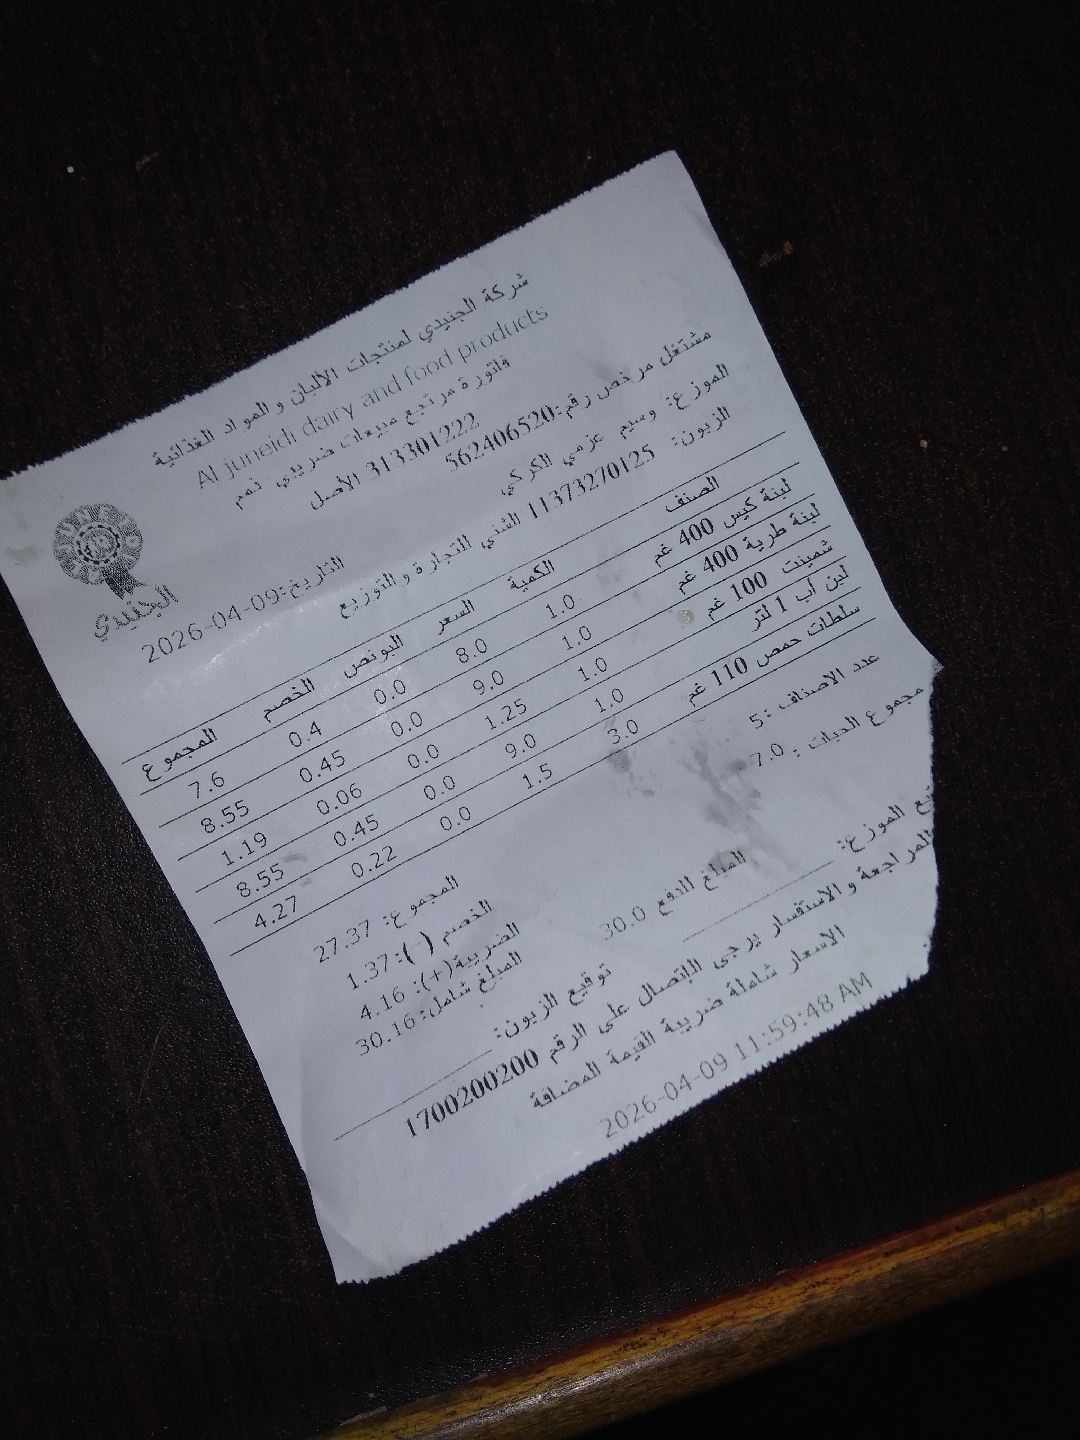 شركة الجنيدي لمنتجات الالبان و المواد الغذائية
Al juneidi dairy and food products
فاتورة مرتجع مبيعات ضريبي ذمم
313301222 الأصل
الجنيدي
مشتغل مرخص رقم:562406520
الموزع: وسيم عزمي الكركي
الزبون: 11373270125 الشني التجارة و التوزيع
التاريخ:2026-04-09
الصنف الكمية السعر البونص الخصم المجموع
لبنة كيس 400 غم 1.0 8.0 0.0 0.4 7.6
لبنة طرية 400 غم 1.0 9.0 0.0 0.45 8.55
شمينت 100 غم 1.0 1.25 0.0 0.06 1.19
لبن أب 1 لتر 1.0 9.0 0.0 0.45 8.55
سلطات حمص 110 غم 3.0 1.5 0.0 0.22 4.27
عدد الاصناف :5
مجموع الحبات : 7.0
المجموع: 27.37
الخصم (-):1.37
الضريبة(+): 4.16
المبلغ شامل:30.16
المبلغ للدفع 30.0
الموزع:
توقيع الزبون:
للمراجعة و الاستفسار يرجى الإتصال على الرقم 1700200200
الاسعار شاملة ضريبة القيمة المضافة
2026-04-09 11:59:48 AM